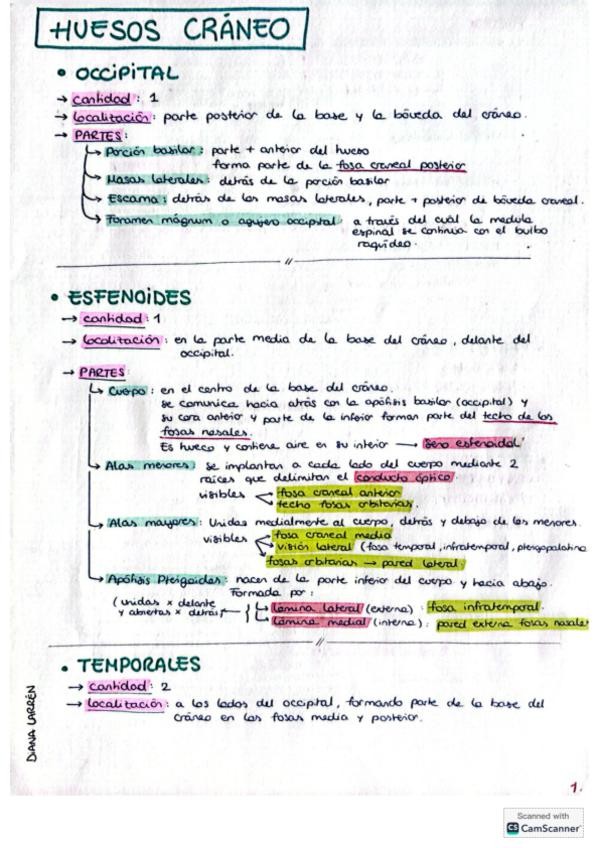 HUESOS CRÁNEO
• OCCIPITAL
→ cantidad: 1
→ localización: parte posterior de la base y la bóveda del cráneo.
→ PARTES:
Porción basilar: parte + anterior del hueso
forma parte de la fosa craneal posterior
Masas laterales: detrás de la porción basilar
Escama: detrás de las masas laterales, parte + posterior de bóveda craneal.
Foramen mágnum o agujero occipital: a través del cuál la medula
espinal se continua con el bulbo
raquídeo.
• ESFENOIDES
→ cantidad: 1
→ localización: en la parte media de la base del cráneo, delante del
occipital.
→ PARTES:
Cuerpo: en el centro de la base del cráneo.
se comunica hacia atrás con la apófisis basilar (occipital) y
su cara anterior y parte de la inferior forman parte del techo de las
fosas nasales.
Es hueco y contiene aire en su interior → Seno esfenoidal
Alas menores: se implantan a cada lado del cuerpo mediante 2
raíces que delimitan el conducto óptico.
visibles fosa craneal anterior
techo fosas orbitarias.
Alas mayores: Unidas medialmente al cuerpo, detrás y debajo de las menores.
visibles fosa craneal media
visión lateral (fosa temporal, infratemporal, pterigopalatina
fosas orbitarias → pared lateral
Apófisis Pterigoides: nacen de la parte inferior del cuerpo y hacia abajo.
Formada por:
(unidas x delante
y abiertas x detrás)
lámina lateral (externa): fosa infratemporal.
lámina medial (interna): pared externa fosas nasales
• TEMPORALES
→ cantidad: 2
→ localización: a los lados del occipital, formando parte de la base del
cráneo en las fosas media y posterior.
DIANA LARRÉN
1.
Scanned with
CS CamScanner